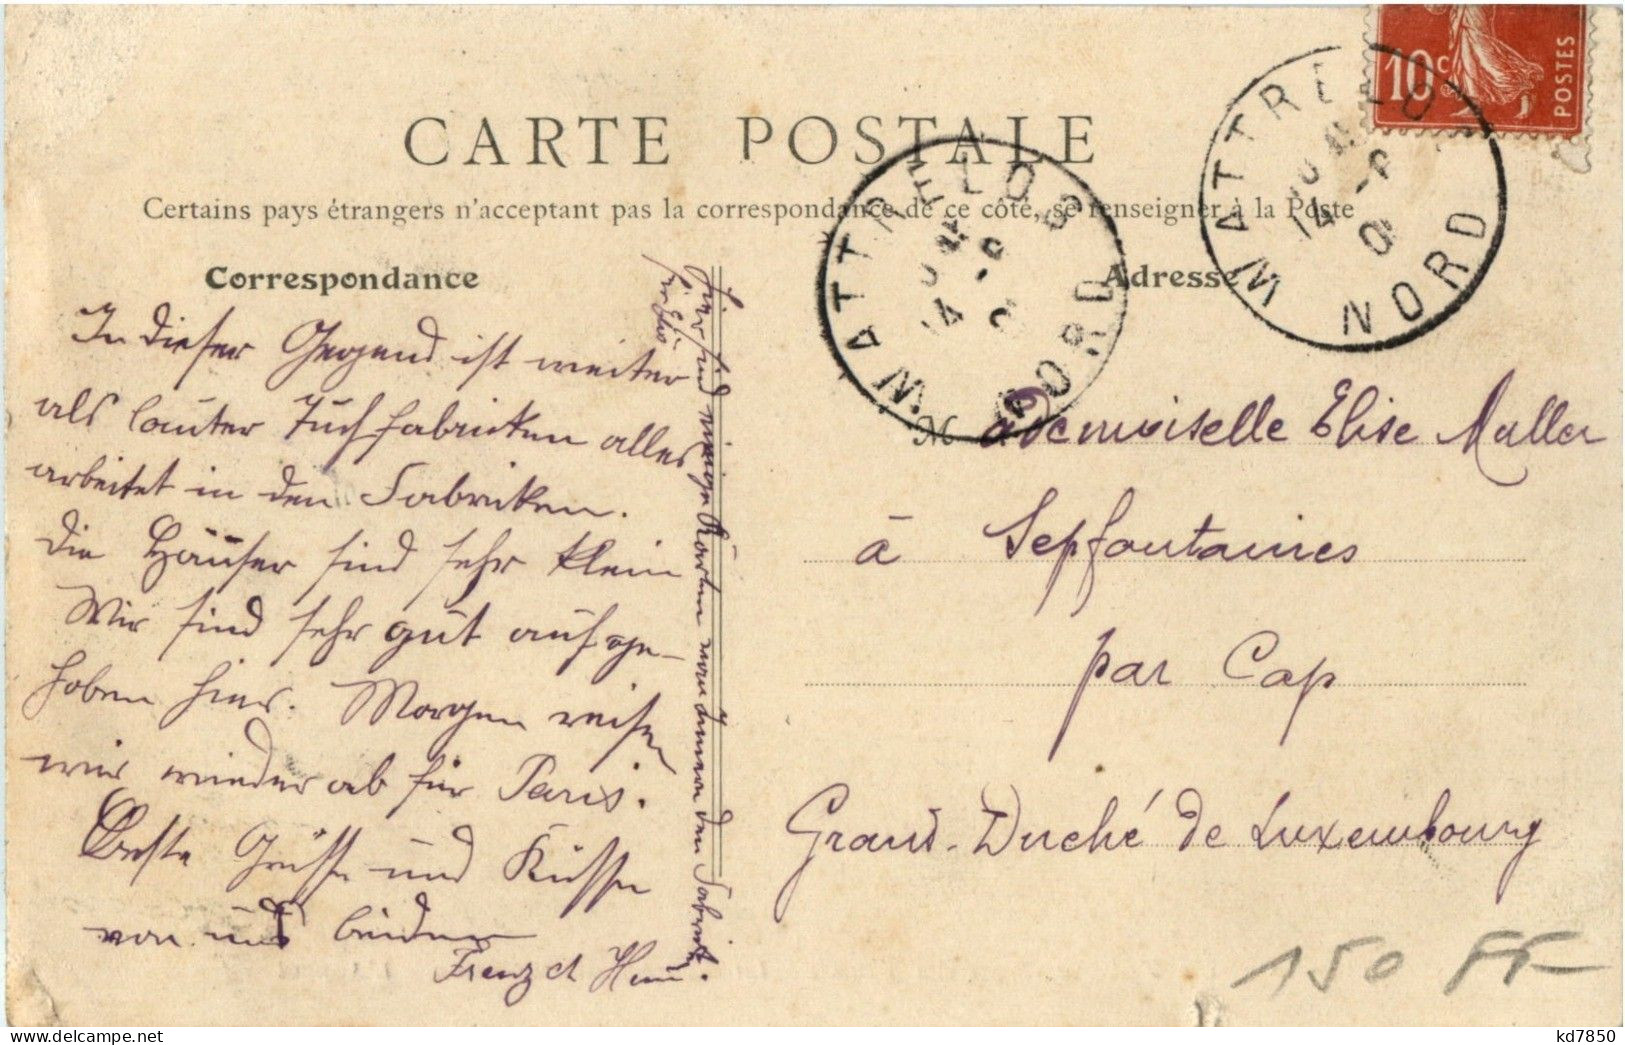 10c
POSTES
WATTRELOS
NORD
WATTRELOS
NORD
CARTE POSTALE
Certains pays étrangers n'acceptent pas la correspondance de ce côté, se renseigner à la Poste
Correspondance
Adresse
In dieser Gegend ist weiter
als lauter Tuchfabriken alles
arbeitet in den Fabriken.
die Häuser sind sehr klein
Wir sind sehr gut aufge-
hoben hier. Morgen reisen
wir wieder ab für Paris.
Beste Grüsse und Küsse
von uns beiden
et
Hier sind einige Karten vom Innern der Fabrik.
Mademoiselle Elise Muller
à Sepfontaines
par Cap
Grand-Duché de Luxembourg
150 FF
kd7850